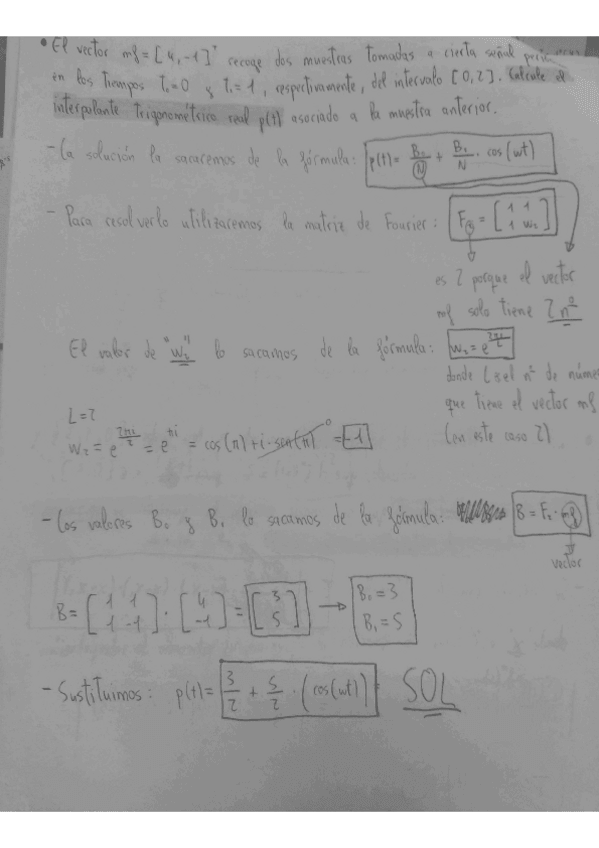 • El vector mf = [4, -1]ᵀ recoge dos muestras tomadas a cierta señal
en los tiempos t₀=0 y t₁=1, respectivamente, del intervalo [0,2]. Calcule el
interpolante trigonométrico real p(t) asociado a la muestra anterior.
- La solución la sacaremos de la fórmula: p(t) = B₀/N + B₁/N · cos(wt)
- Para resolverlo utilizaremos la matriz de Fourier: F₂ = [1 1; 1 w₂]
es 2 porque el vector
mf solo tiene 2 nº
El valor de "w₂" lo sacamos de la fórmula: w₂ = e^(2πi/L)
donde L es el nº de núme
que tiene el vector mf
(en este caso 2)
L=2
w₂ = e^(2πi/2) = e^(πi) = cos(π) + i·sen(π)⁰ = -1
- Los valores B₀ y B₁ lo sacamos de la fórmula: B = F₂ · mf
vector
B = [1 1; 1 -1] · [4; -1] = [3; 5] → B₀ = 3
B₁ = 5
- Sustituimos: p(t) = 3/2 + 5/2 · (cos(wt)) SOL